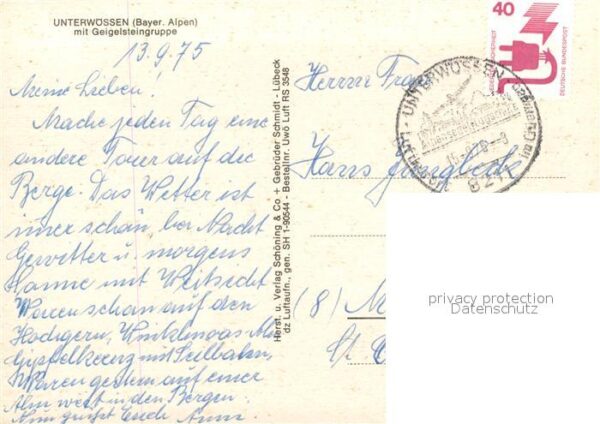 UNTERWÖSSEN (Bayer. Alpen)
mit Geigelsteingruppe
13.9.75
Meine Lieben!
Mache jeden Tag eine
andere Tour auf die
Berge. Das Wetter ist
imer schön, bei Nacht
Gewitter u. morgens
mit Weitsicht
Waren schon auf den
Hochgern, Winklmoos
Gipfelkreuz mit Seilbahn,
Waren gestern auf einer
Alm weit in den Bergen.
grüßt Euch
Herst. u. Verlag Schöning & Co + Gebrüder Schmidt - Lübeck
dz Luftaufn., gen. SH 1-90544 - Bestellnr. Uwö Luft RS 3548
40
DEUTSCHE BUNDESPOST
UNTERWÖSSEN
Alpensegelflugschule
821
Herrn Frau
Hans Jungbeck
(8)
privacy protection
Datenschutz